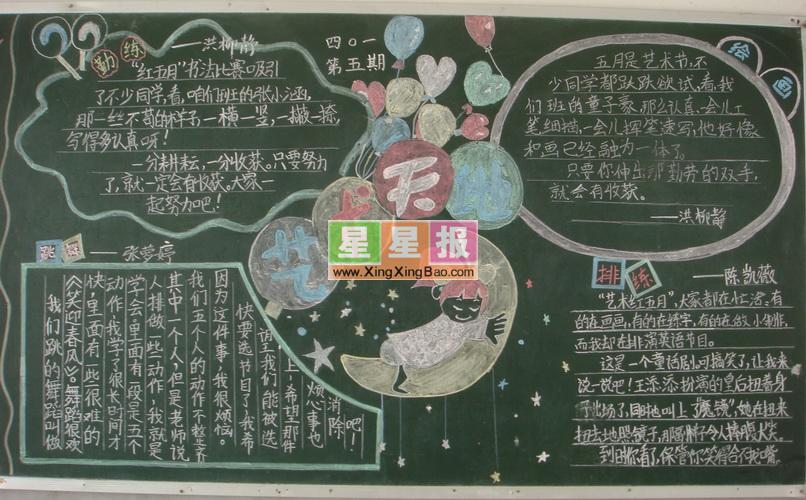 勤练
——洪柳静
"红五月"书法比赛吸引
了不少同学看,咱们班的张小涵,
那一丝不苟的样子,一横一竖,一撇一捺,
写得多认真呀!
一分耕耘,一分收获。只要努力
了,就一定会有收获。大家一
起努力吧!
四〇一
第五期
艺术天地
星星报
www.XingXingBao.com
绘画
五月是艺术节,不
少同学都跃跃欲试,看,我
们班的童子豪,那么认真,一会儿工
笔细描,一会儿挥笔速写,他好像
和画已经融为一体了。
只要你伸出那勤劳的双手,
就会有收获。
——洪柳静
跳舞
——张梦婷
我们跳的舞蹈叫做
《笑迎春风》。舞蹈很欢
快,里面有一些很难的
动作,我学了很长时间才
学会,里面有一段是五个
人排做一些动作,我就是
其中一个人,但是老师说
我们五个人的动作不整齐,
因为这件事,我很烦恼。
快要选节目了,我希
望我们能被选
上,希望那件
烦心事也
消除
吧!
排练
——陈凯薇
"艺术红五月",大家都在忙活,有
的在画画,有的在练字,有的在做小制作,
而我却在排演英语节目。
这是一个童话剧。可搞笑了,让我来
说一说吧!王添添扮演的皇后扭着身
子出场了,同时也叫上了"魔镜",她在扭来
扭去地照镜子,那副样子令人捧腹大笑。
到时你看了,保管你笑得合不拢嘴。